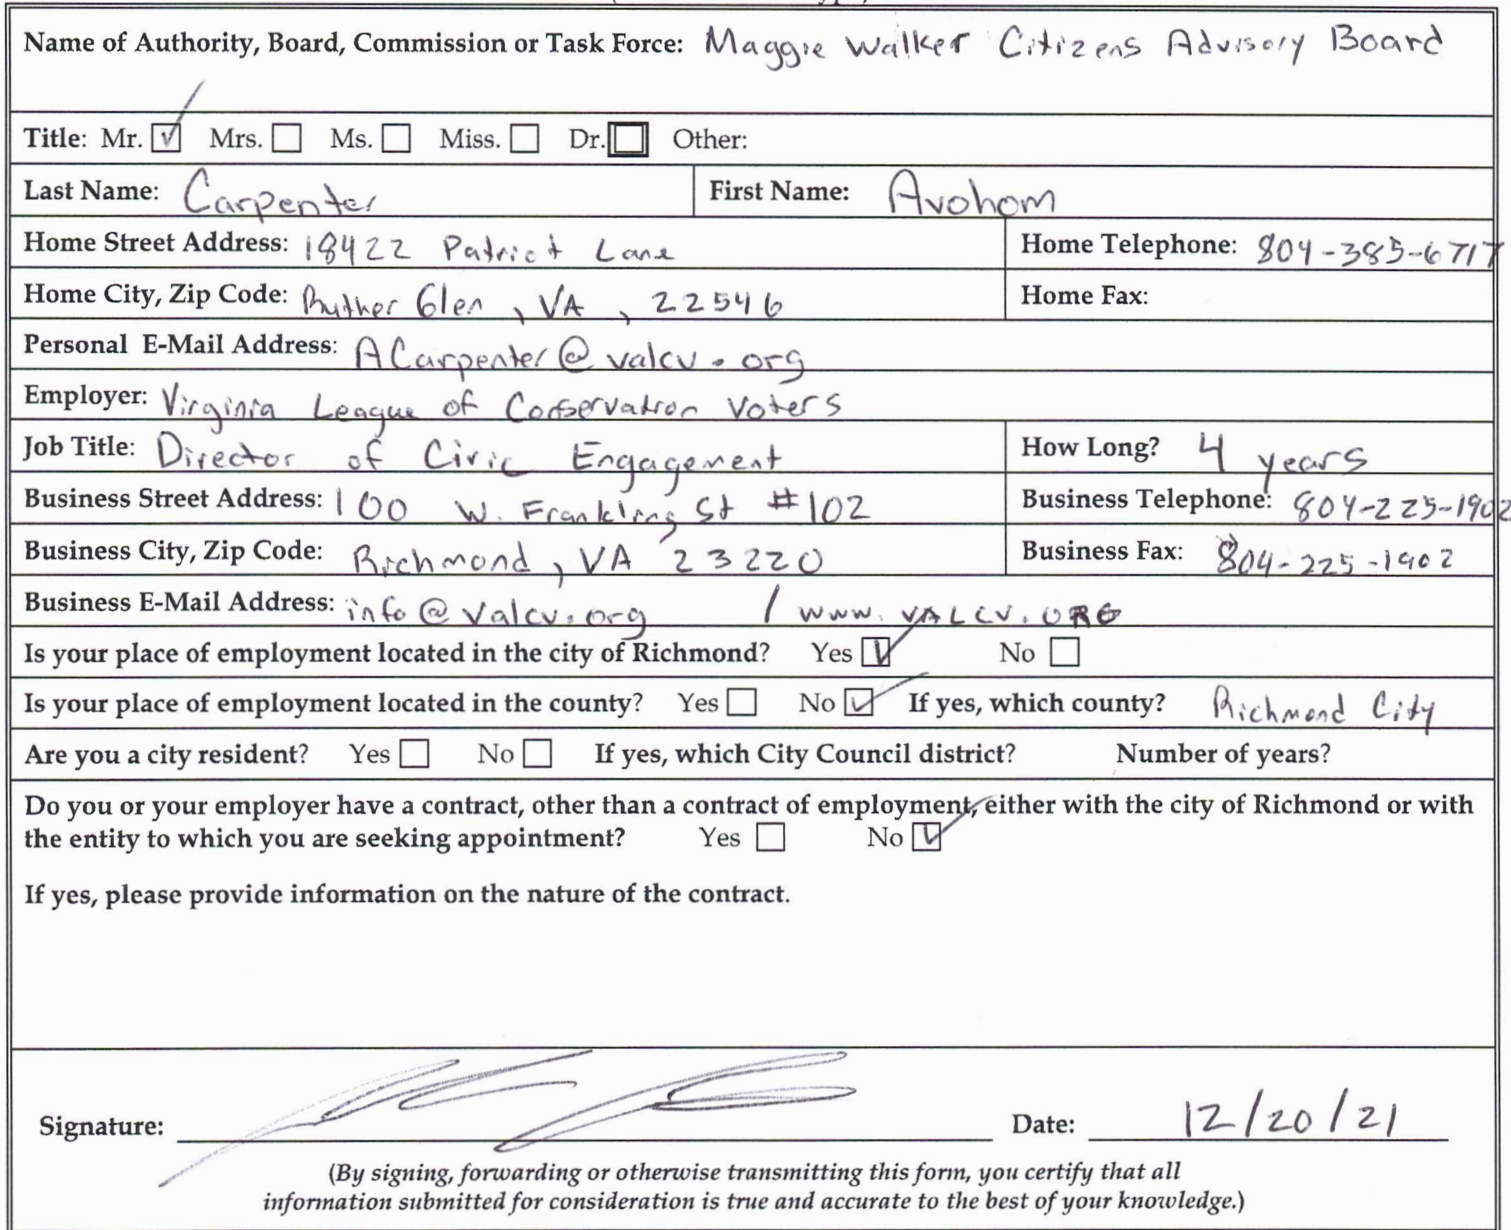 Name of Authority, Board, Commission or Task Force: Maggie Walker Citizens Advisory Board
Title: Mr. ☑ Mrs. ☐ Ms. ☐ Miss. ☐ Dr. ☐ Other:
Last Name: Carpenter First Name: Avohom
Home Street Address: 18422 Patriot Lane Home Telephone: 804-385-6717
Home City, Zip Code: Ruther Glen, VA, 22546 Home Fax:
Personal E-Mail Address: ACarpenter@valcv.org
Employer: Virginia League of Conservation Voters
Job Title: Director of Civic Engagement How Long? 4 years
Business Street Address: 100 W. Frankling St #102 Business Telephone: 804-225-1902
Business City, Zip Code: Richmond, VA 23220 Business Fax: 804-225-1902
Business E-Mail Address: info@valcv.org / www.VALCV.ORG
Is your place of employment located in the city of Richmond? Yes ☑ No ☐
Is your place of employment located in the county? Yes ☐ No ☑ If yes, which county? Richmond City
Are you a city resident? Yes ☐ No ☐ If yes, which City Council district? Number of years?
Do you or your employer have a contract, other than a contract of employment, either with the city of Richmond or with
the entity to which you are seeking appointment? Yes ☐ No ☑
If yes, please provide information on the nature of the contract.
Signature: Date: 12/20/21
(By signing, forwarding or otherwise transmitting this form, you certify that all
information submitted for consideration is true and accurate to the best of your knowledge.)